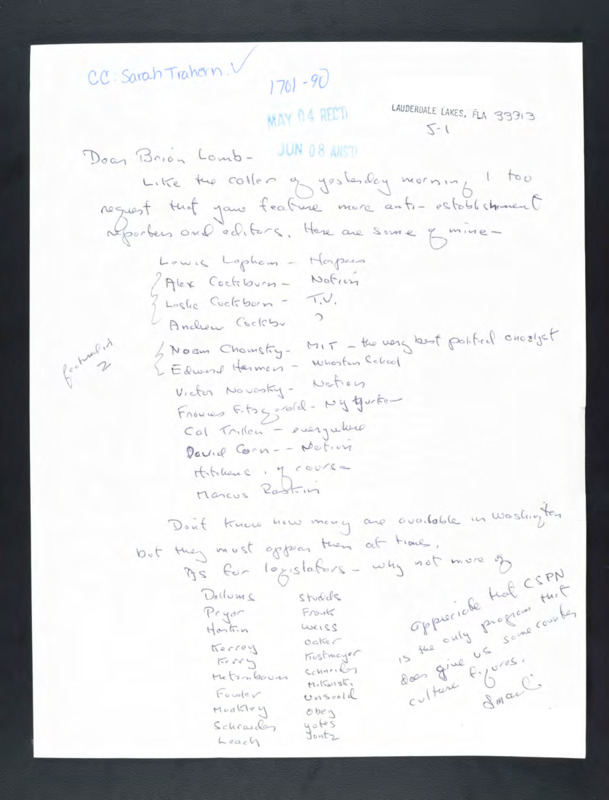 CC: Sarah Trahern. ✓
1701-90
MAY 04 REC'D
LAUDERDALE LAKES, FLA 33313
5-1
JUN 08 ANS'D
Dear Brian Lamb-
Like the caller of yesterday morning, I too
request that you feature more anti-establishment
reporters and editors. Here are some of mine-
Lewis Lapham - Harpers
Alex Cockburn - Nation
Leslie Cockburn - T.V.
Andrew Cockbu ?
Noam Chomsky - MIT - the very best political analyst
Edward Herman - Wharton School
featured 2
Victor Navasky - Nation
Frances Fitzgerald - NY Yorker
Cal Trillin - everywhere
David Corn -- Nation
Hitchens, of course
Marcus Raskin
Don't know how many are available in Washington
but they must appear there at times.
As for legislators - why not more of
Dellums Studds
Pryor Frank
Harkin Weiss
Kerrey Oakar
Kerry Kostmayer
Metzenbaum Schneider
Fowler Mikulski
Moakley Unsoeld
Schroeder Obey
Leach Yates
Jontz
appreciate that CSPN
is the only program that
does give us some counter
culture figures.